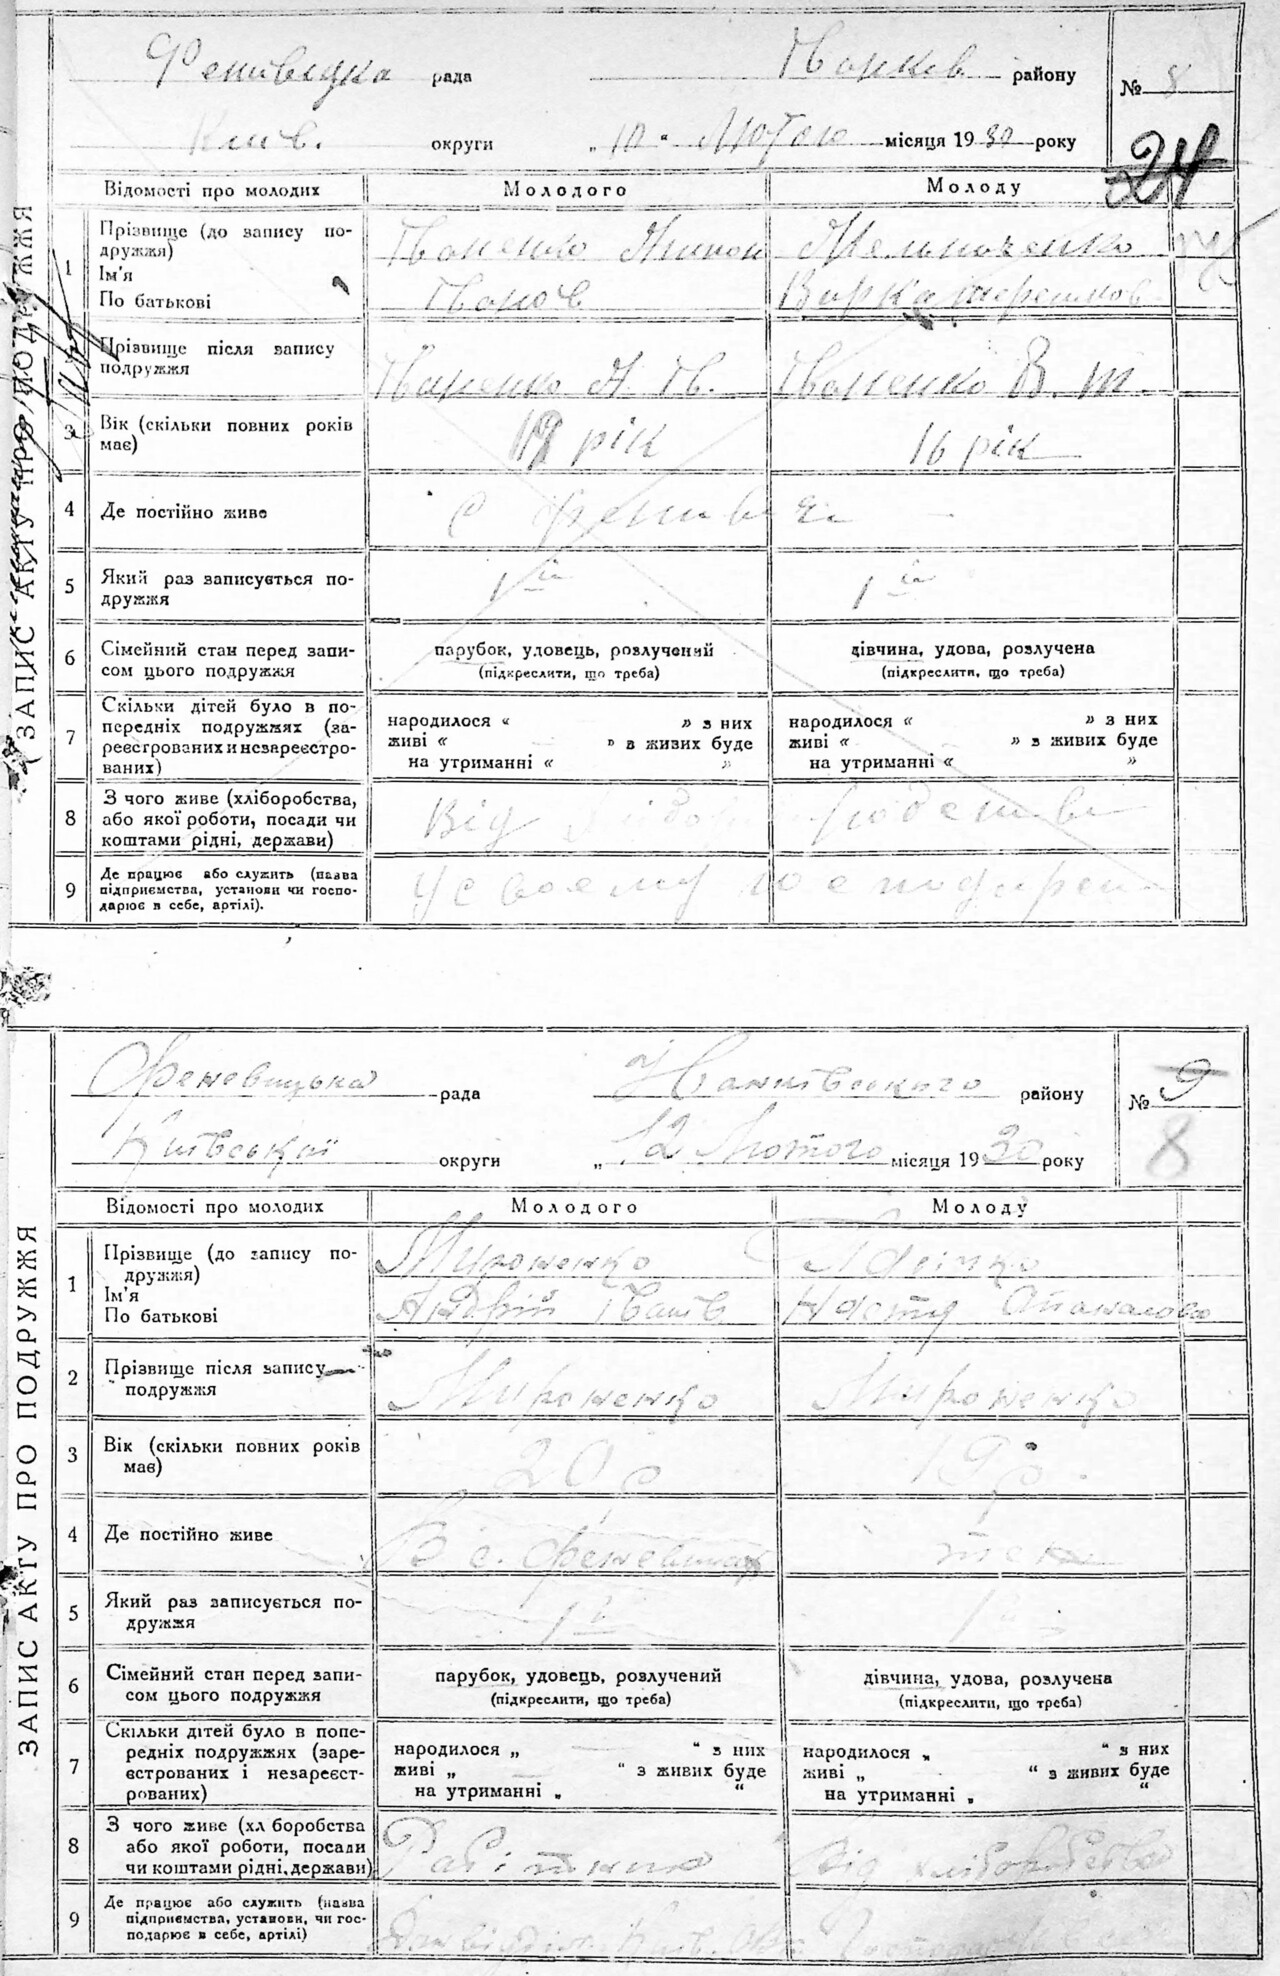 Феневицка рада Іванків. районУ
№ 8
Київ. округи „ 10 “ Лютого місяця 1930 року
24
ЗАПИС АКТУ ПРО ПОДРУЖЖЯ
Відомості про молодих Молодого Молоду
1 Прізвище (до запису подружжя)
Ім'я
По батькові
Іваненко
Іванов
Мельниченко
Вирка
2 Прізвище після запису подружжя
Іваненко Я. Ів.
Іваненко В. т.
3 Вік (скільки повних років має)
рік
16 рік
4 Де постійно живе
С Феневичи
5 Який раз записується подружжя
1й
1й
6 Сімейний стан перед записом цього подружжя
парубок, удовець, розлучений
(підкреслити, що треба)
дівчина, удова, розлучена
(підкреслити, що треба)
7 Скільки дітей було в попередніх подружжях (зареєстрованих и незареєстрованих)
народилося “ » з них
живі “ » в живих буде
на утриманні “ »
народилося “ » з них
живі “ » в живих буде
на утриманні “ »
8 З чого живе (хліборобства, або якої роботи, посади чи коштами рідні, держави)
Від
9 Де працює або служить (назва підприємства, установи чи господарює в себе, артілі).
У своему
Феневицька рада Іванківського району
№ 9
8
Київської округи „ 12 Лютого місяця 1930 року
ЗАПИС АКТУ ПРО ПОДРУЖЖЯ
Відомості про молодих Молодого Молоду
1 Прізвище (до запису подружжя)
Ім'я
По батькові
Мироненко
Андрій Іванів
Настя
2 Прізвище після запису подружжя
Мироненко
Мироненко
3 Вік (скільки повних років має)
20 р
19 р.
4 Де постійно живе
В с. Феневичах
теж
5 Який раз записується подружжя
1й
1й
6 Сімейний стан перед записом цього подружжя
парубок, удовець, розлучений
(підкреслити, що треба)
дівчина, удова, розлучена
(підкреслити, що треба)
7 Скільки дітей було в попередніх подружжях (зареєстрованих і незареєстрованих)
народилося „ “ з них
живі „ “ з живих буде
на утриманні „ “
народилося „ “ з них
живі „ “ з живих буде
на утриманні „ “
8 З чого живе (хл боробства або якої роботи, посади чи коштами рідні, держави)
Від хліборобства
9 Де працює або служить (назва підприємства, установи, чи господарює в себе, артілі)